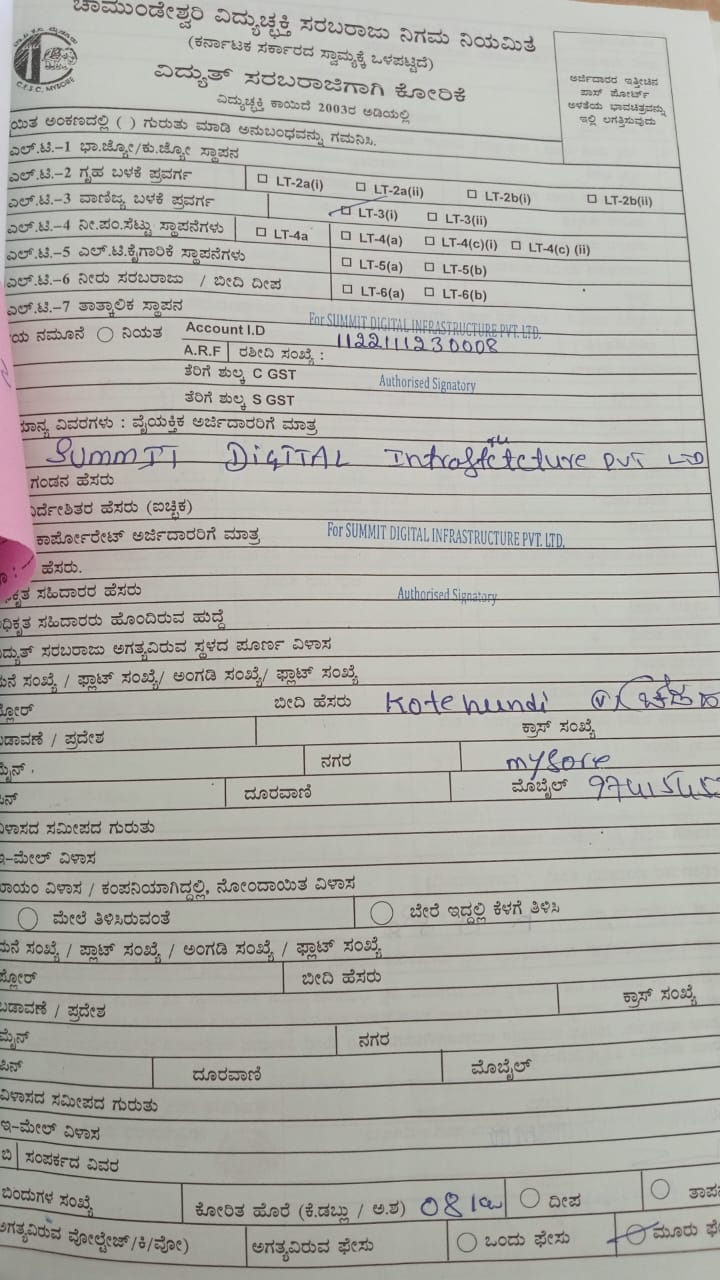 ಚಾಮುಂಡೇಶ್ವರಿ ವಿದ್ಯುಚ್ಛಕ್ತಿ ಸರಬರಾಜು ನಿಗಮ ನಿಯಮಿತ
(ಕರ್ನಾಟಕ ಸರ್ಕಾರದ ಸ್ವಾಮ್ಯಕ್ಕೆ ಒಳಪಟ್ಟಿದೆ)
C.E.S.C, MYSORE
ವಿದ್ಯುತ್ ಸರಬರಾಜಿಗಾಗಿ ಕೋರಿಕೆ
ವಿದ್ಯುಚ್ಛಕ್ತಿ ಕಾಯಿದೆ 2003ರ ಅಡಿಯಲ್ಲಿ
ಅರ್ಜಿದಾರರ ಇತ್ತೀಚಿನ
ಪಾಸ್ ಪೋರ್ಟ್
ಅಳತೆಯ ಭಾವಚಿತ್ರವನ್ನು
ಇಲ್ಲಿ ಲಗತ್ತಿಸುವುದು
ಯಿತ ಅಂಕಣದಲ್ಲಿ ( ) ಗುರುತು ಮಾಡಿ ಅನುಬಂಧವನ್ನು ಗಮನಿಸಿ.
ಎಲ್.ಟಿ.-1 ಭಾ.ಜ್ಯೋ/ಕು.ಜ್ಯೋ ಸ್ಥಾಪನ
ಎಲ್.ಟಿ.-2 ಗೃಹ ಬಳಕೆ ಪ್ರವರ್ಗ LT-2a(i) LT-2a(ii) LT-2b(i) LT-2b(ii)
ಎಲ್.ಟಿ.-3 ವಾಣಿಜ್ಯ ಬಳಕೆ ಪ್ರವರ್ಗ LT-3(i) LT-3(ii)
ಎಲ್.ಟಿ.-4 ನೀ.ಪಂ.ಸೆಟ್ಟು ಸ್ಥಾಪನೆಗಳು LT-4a LT-4(a) LT-4(c)(i) LT-4(c) (ii)
ಎಲ್.ಟಿ.-5 ಎಲ್.ಟಿ.ಕೈಗಾರಿಕೆ ಸ್ಥಾಪನೆಗಳು LT-5(a) LT-5(b)
ಎಲ್.ಟಿ.-6 ನೀರು ಸರಬರಾಜು / ಬೀದಿ ದೀಪ LT-6(a) LT-6(b)
ಎಲ್.ಟಿ.-7 ತಾತ್ಕಾಲಿಕ ಸ್ಥಾಪನ
For SUMMIT DIGITAL INFRASTRUCTURE PVT. LTD.
ಯ ನಮೂನೆ ನಿಯತ Account I.D 1122111230008
A.R.F ರಶೀದಿ ಸಂಖ್ಯೆ :
ತೆರಿಗೆ ಶುಲ್ಕ C GST Authorised Signatory
ತೆರಿಗೆ ಶುಲ್ಕ S GST
ಮಾನ್ಯ ವಿವರಗಳು : ವೈಯಕ್ತಿಕ ಅರ್ಜಿದಾರರಿಗೆ ಮಾತ್ರ
SUMMIT DIGITAL PVT LTD
ಗಂಡನ ಹೆಸರು
ರ್ದೇಶಿತರ ಹೆಸರು (ಐಚ್ಛಿಕ)
ಕಾರ್ಪೋರೇಟ್ ಅರ್ಜಿದಾರರಿಗೆ ಮಾತ್ರ For SUMMIT DIGITAL INFRASTRUCTURE PVT. LTD.
ಹೆಸರು.
ಧಿಕೃತ ಸಹಿದಾರರ ಹೆಸರು Authorised Signatory
ಧಿಕೃತ ಸಹಿದಾರರು ಹೊಂದಿರುವ ಹುದ್ದೆ
ದ್ಯುತ್ ಸರಬರಾಜು ಅಗತ್ಯವಿರುವ ಸ್ಥಳದ ಪೂರ್ಣ ವಿಳಾಸ
ಮನೆ ಸಂಖ್ಯೆ / ಫ್ಲಾಟ್ ಸಂಖ್ಯೆ/ ಅಂಗಡಿ ಸಂಖ್ಯೆ/ ಫ್ಲಾಟ್ ಸಂಖ್ಯೆ
ಫ್ಲೋರ್ ಬೀದಿ ಹೆಸರು Kotehundi (V)
ಬಡಾವಣೆ / ಪ್ರದೇಶ ಕ್ರಾಸ್ ಸಂಖ್ಯೆ
ಮೈನ್ . ನಗರ mysore
ಪಿನ್ ದೂರವಾಣಿ ಮೊಬೈಲ್
ವಿಳಾಸದ ಸಮೀಪದ ಗುರುತು
ಇ-ಮೇಲ್ ವಿಳಾಸ
ಾಯಂ ವಿಳಾಸ / ಕಂಪನಿಯಾಗಿದ್ದಲ್ಲಿ, ನೋಂದಾಯಿತ ವಿಳಾಸ
ಮೇಲೆ ತಿಳಿಸಿರುವಂತೆ ಬೇರೆ ಇದ್ದಲ್ಲಿ ಕೆಳಗೆ ತಿಳಿಸಿ
ಮನೆ ಸಂಖ್ಯೆ / ಪ್ಲಾಟ್ ಸಂಖ್ಯೆ / ಅಂಗಡಿ ಸಂಖ್ಯೆ / ಫ್ಲಾಟ್ ಸಂಖ್ಯೆ
ಫ್ಲೋರ್ ಬೀದಿ ಹೆಸರು
ಬಡಾವಣೆ / ಪ್ರದೇಶ ಕ್ರಾಸ್ ಸಂಖ್ಯೆ
ಮೈನ್ ನಗರ
ಪಿನ್ ದೂರವಾಣಿ ಮೊಬೈಲ್
ವಿಳಾಸದ ಸಮೀಪದ ಗುರುತು
ಇ-ಮೇಲ್ ವಿಳಾಸ
ಬಿ ಸಂಪರ್ಕದ ವಿವರ
ಬಿಂದುಗಳ ಸಂಖ್ಯೆ ಕೋರಿತ ಹೊರೆ (ಕೆ.ಡಬ್ಲು / ಅ.ಶ) 08 ದೀಪ ತಾಪ
ಅಗತ್ಯವಿರುವ ವೋಲ್ಟೇಜ್/ಕಿ/ವೋ) ಅಗತ್ಯವಿರುವ ಫೇಸು ಒಂದು ಫೇಸು ಮೂರು ಫೇ